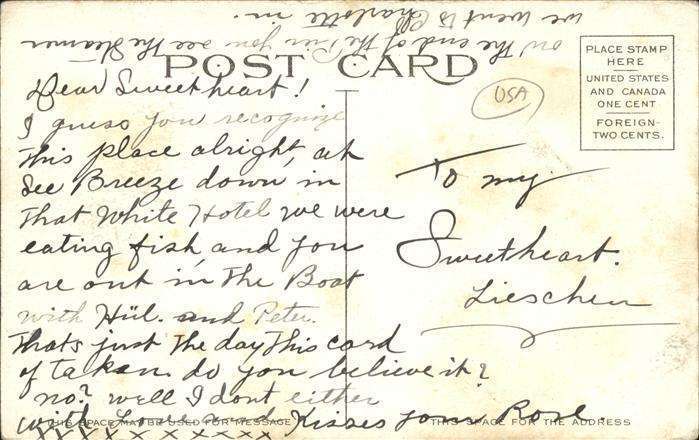 on the end of the Pier you see the Steamer
we went to Charlotte in.
POST CARD
PLACE STAMP
HERE
UNITED STATES
AND CANADA
ONE CENT
FOREIGN-
TWO CENTS.
USA
Dear Sweetheart!
I guess you recognize
this place alright, at
See Breeze down in
that White Hotel we were
eating fish, and you
are out in the Boat
with Hül. and Peter.
Thats just the day this card
of taken do you believe it?
no? well I dont either
with Love and Kisses your Rose.
x x x x x x x x x
To my
Sweetheart.
Lieschen
THIS SPACE MAY BE USED FOR MESSAGE
THIS SPACE FOR THE ADDRESS